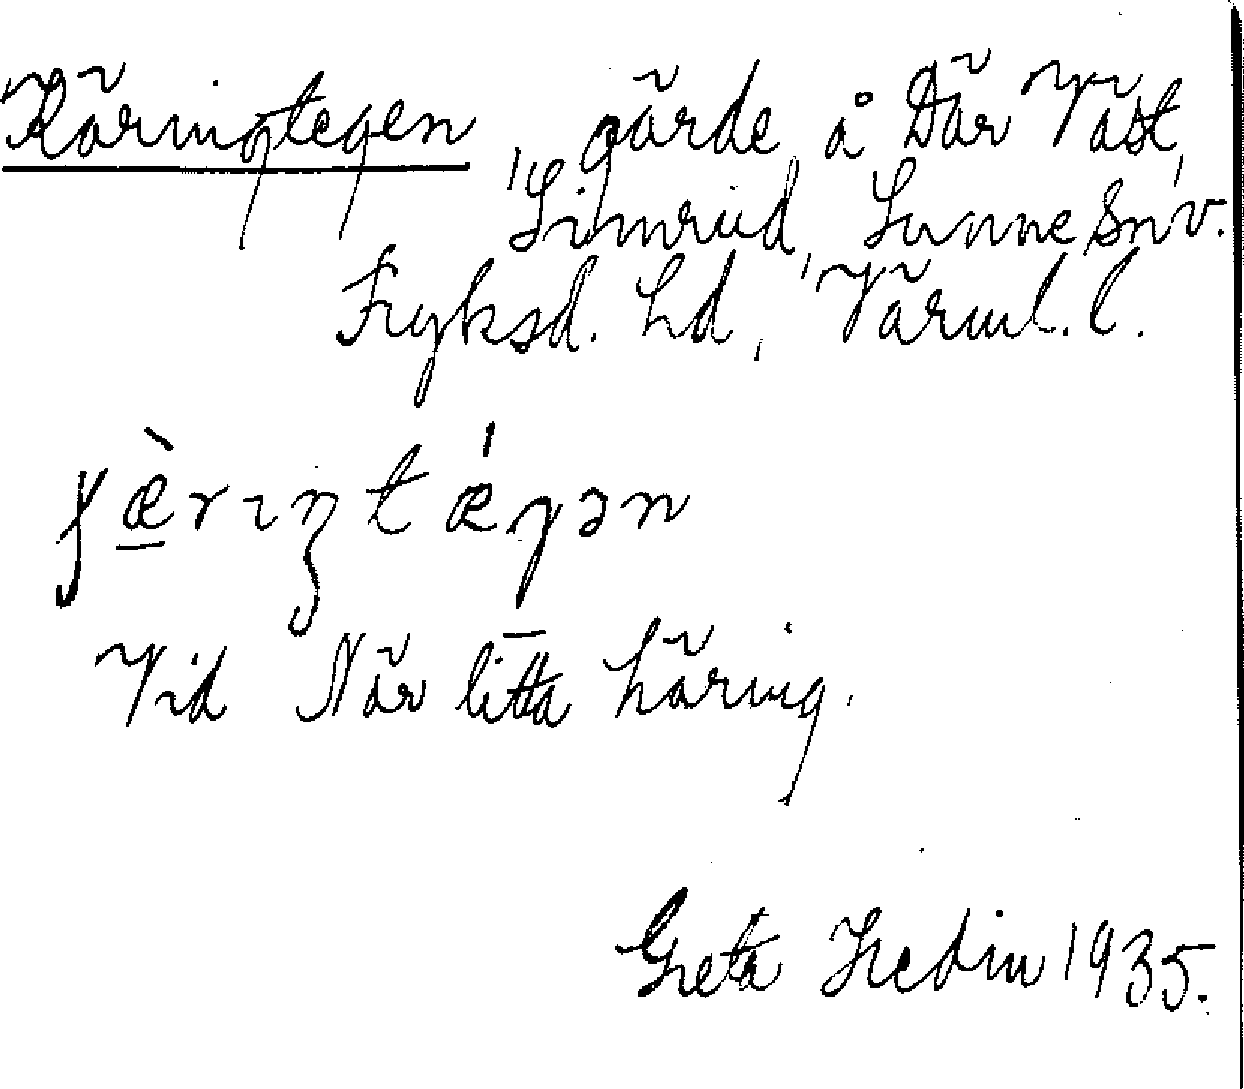 Käringtegen, gärde å Där Väst,
Simrud, Sunne sn v.
Fryksd. hd, Värml. l.
Vid När litta häring.
Greta Hedin 1935.